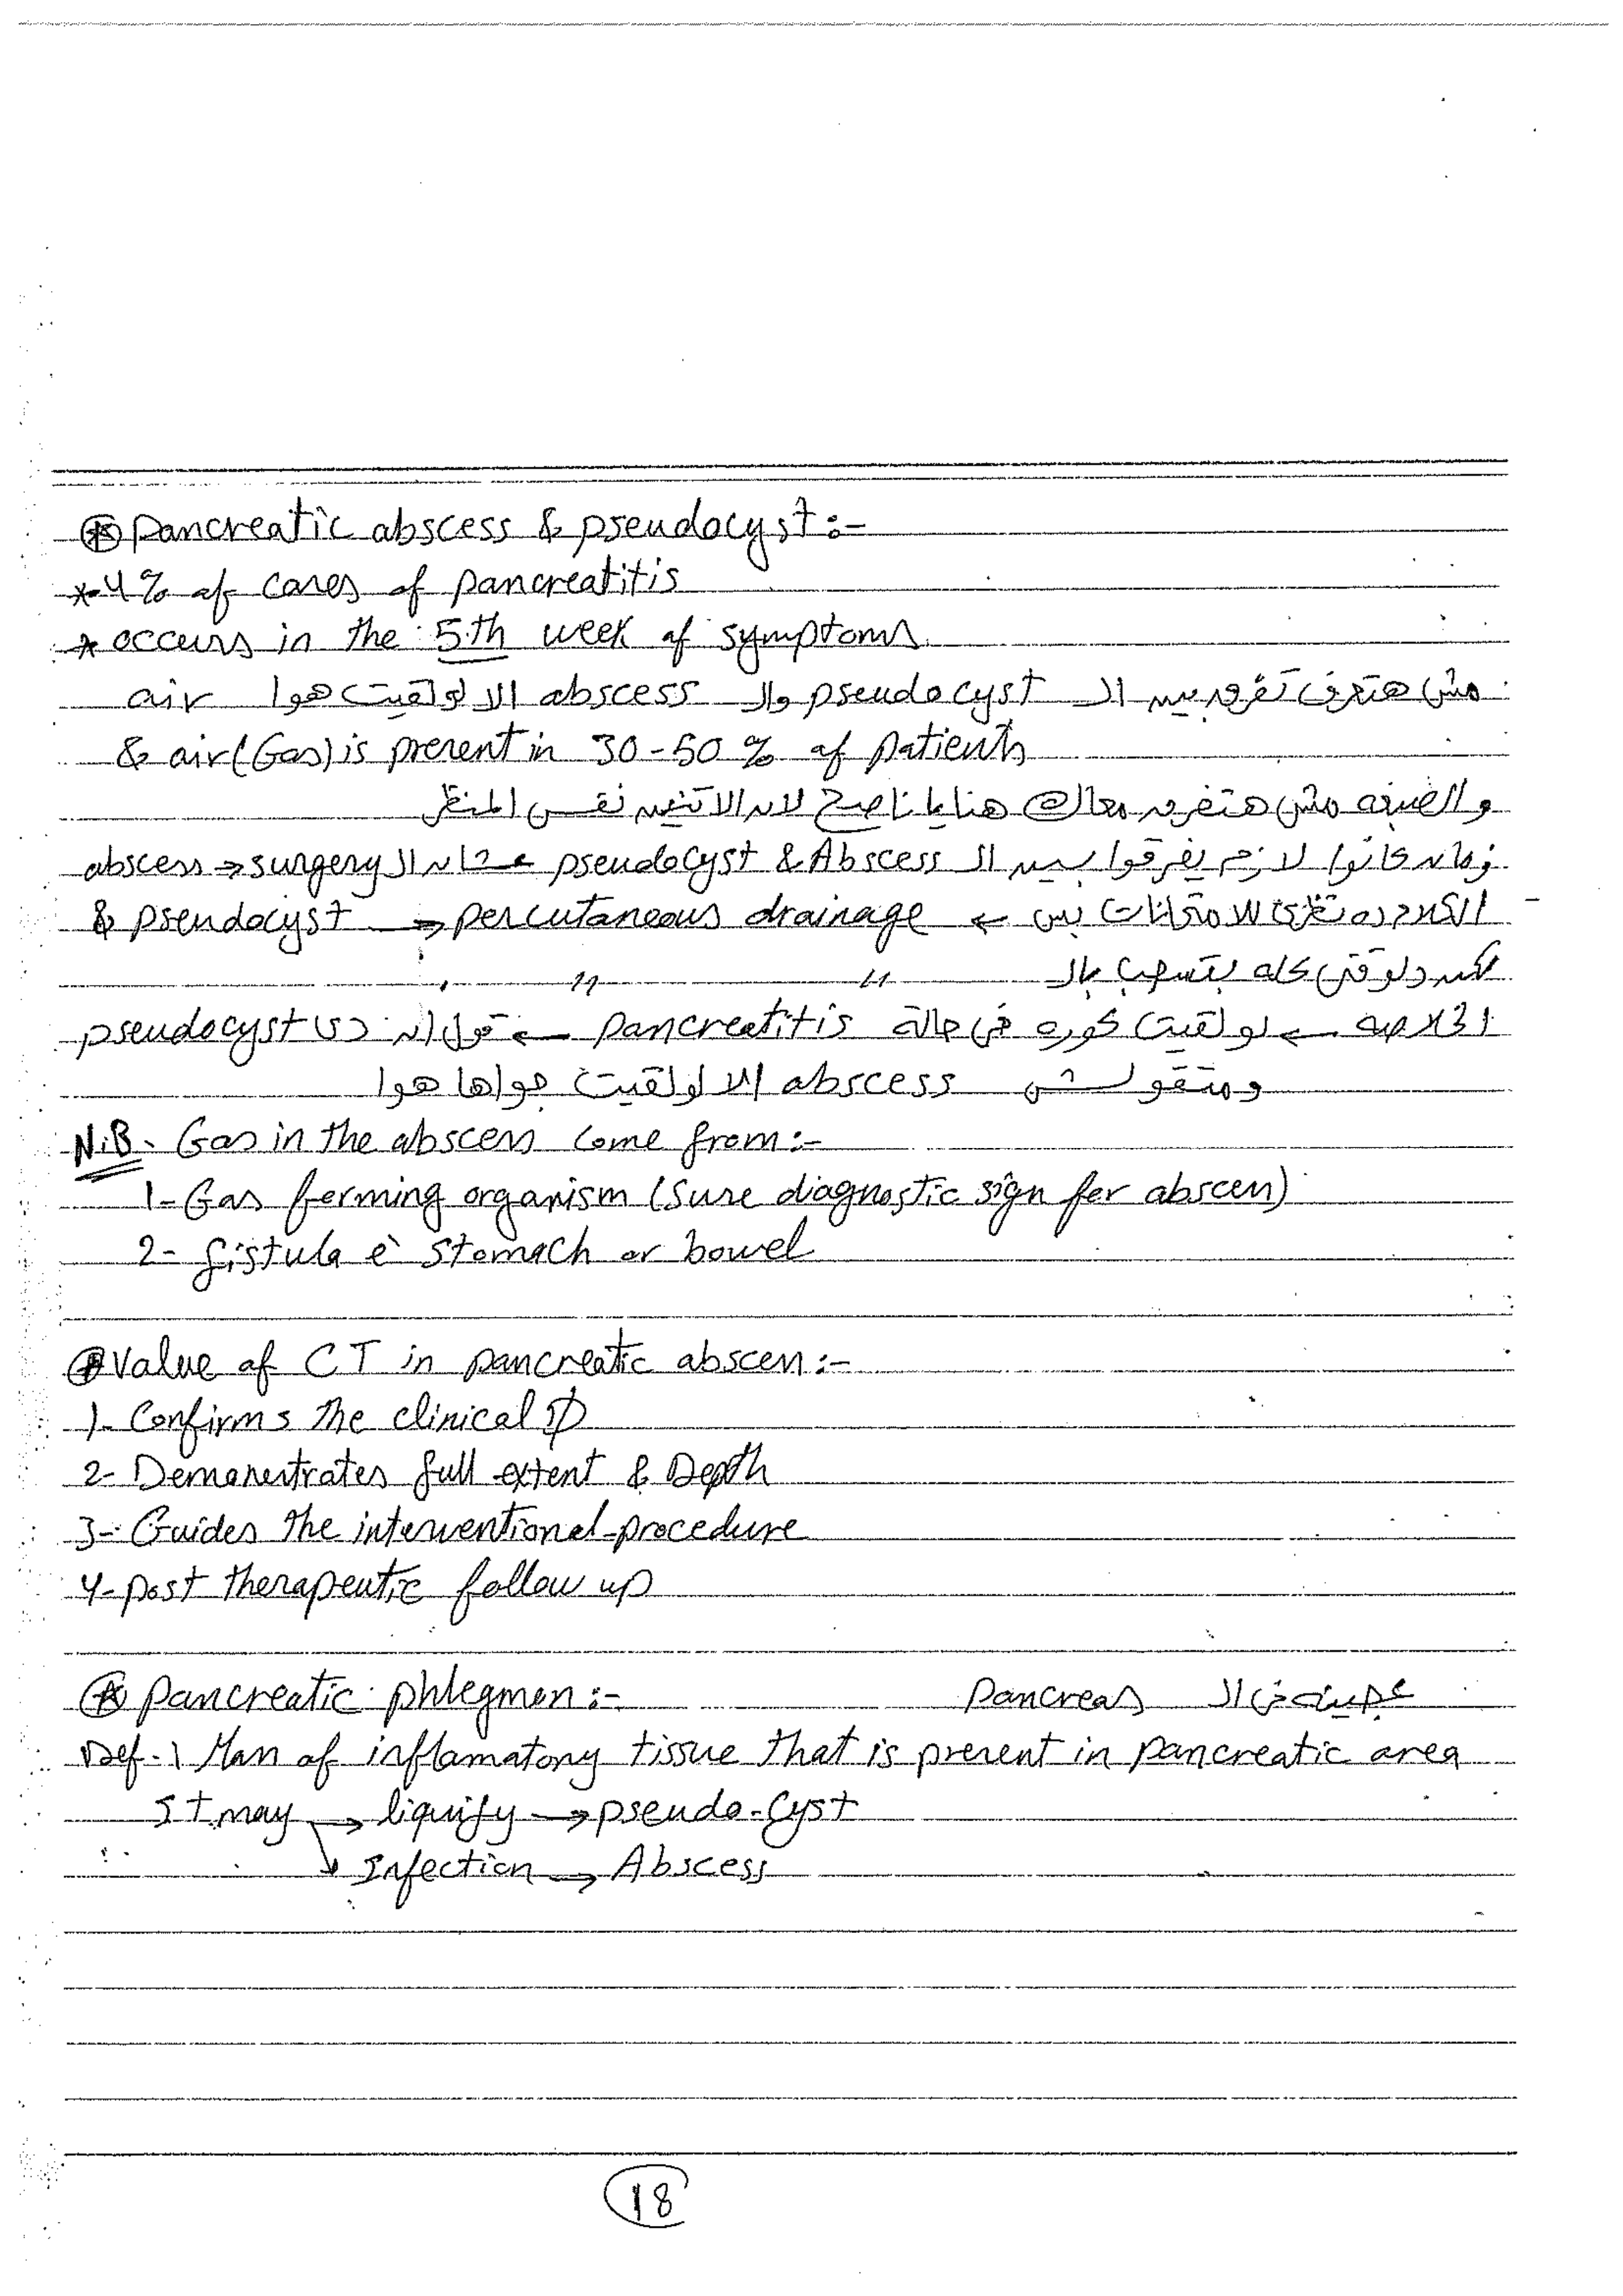 ⊛ pancreatic abscess & pseudocyst:-
* 4% of cases of pancreatitis
* occurs in the 5th week of symptoms
مش هتعرف تفرق بين ال pseudocyst وال abscess الا لو لقيت هوا air
& air (Gas) is present in 30-50% of patients
والصبغه مش هتفرق معاك هنا يا ناصح لان الاتنين نفس المنظر
زمان كانوا لازم يفرقوا بين ال pseudocyst & Abscess عشان ال abscess → surgery
& pseudocyst → percutaneous drainage ← الكلام ده نظرى للامتحانات بس
لكن دلوقتى كله بيتسحب بال " "
الخلاصه ← لو لقيت كوره فى حالة pancreatitis ← قول ان دى pseudocyst
ومتقولش abscess الا لو لقيت جواها هوا
N.B- Gas in the abscess come from:-
1- Gas forming organism (Sure diagnostic sign for abscess)
2- fistula è stomach or bowel
⊛ Value of CT in pancreatic abscess:-
1- Confirms the clinical D
2- Demonestrates full extent & Depth
3- Guides the interventional procedure
4- post therapeutic follow up
⊛ pancreatic phlegmon:- فى ال pancreas
Def. Mass of inflamatory tissue that is present in pancreatic area
It may → liquify → pseudo-cyst
↘ Infection → Abscess
18